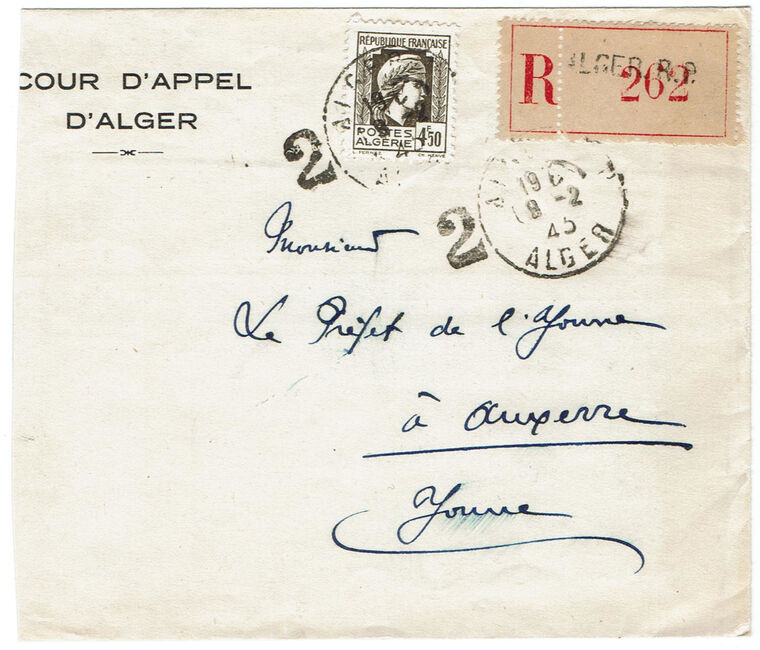 COUR D'APPEL
D'ALGER
RÉPUBLIQUE FRANÇAISE
POSTES
ALGÉRIE
4F50
R
ALGER R.P.
262
2
2
19
8 -2
45
ALGER
Monsieur
Le Préfet de l'Yonne
à Auxerre
Yonne